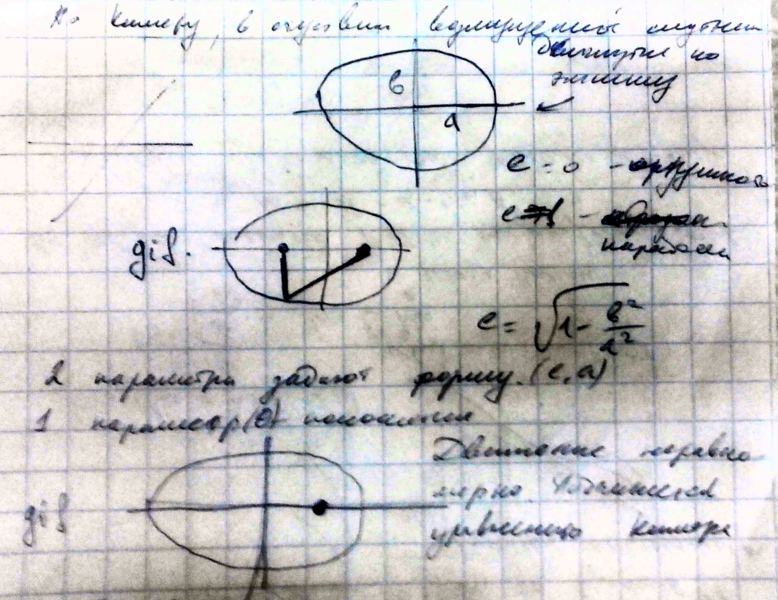 По Кеплеру, в отсутствии возмущений спутник
движутся по
эллипсу
в
a
e = 0 - окружность
e=1 -
парабола
gif.
e = √1 - в²/a²
2 параметра задают форму. (e, a)
1 параметр (θ) положения
Движение неравно
мерно. Подчиняется
уравнению Кеплера
gif